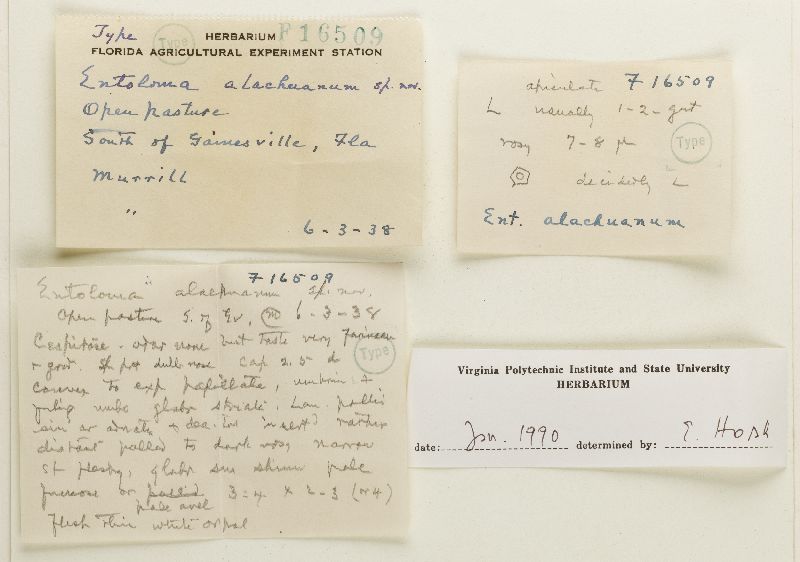 Type HERBARIUM F16509
Type
FLORIDA AGRICULTURAL EXPERIMENT STATION
Entoloma alachuanum sp. nov.
Open pasture
South of Gainesville, Fla
Murrill
"
6-3-38
apiculate F16509
L usually 1-2-gut
rosy 7-8 µ
Type
decidedly L
Ent. alachuanum
F16509
Entoloma alachuanum sp. nov.
Open pasture S. of Gv, M 6-3-38
Cespitose. odor none but taste very farinaceous
+ good. Sp. pr dull rose. Cap 2.5
Type
convex to exp papillate,
umbo glabr striate. Lam. pallid
sin or adnate
distant pallid to dark rosy narrow
St fleshy, glabr sm shiny pale
fumose or pallid 3-4 x 2-3 (or 4)
pale avel
Flesh thin white or pal
Virginia Polytechnic Institute and State University
HERBARIUM
date: Jan. 1990 determined by: E. Horak